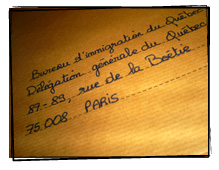 Bureau d'immigration du Québec
Délégation générale du Québec
87-89, rue de la Boëtie
75.008 PARIS